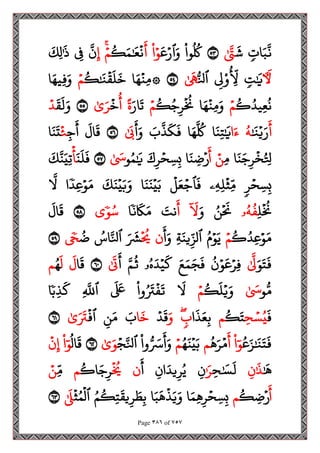 نَّبَاتٍ شَتَّىٰ ٥٣ كُلُواْ وَٱرْعَوْاْ أَنْعَٰمَكُمْۥٓ إِنَّ فِي ذَٰلِكَ
لَأٓيَٰتٍ لِّأُوْلِي ٱلنُّهَىٰ ٥٤ ۞ مِنْهَا خَلَقْنَٰكُمْ وَفِيهَا
نُعِيدُكُمْ وَمِنْهَا نُخْرِجُكُمْ تَارَةً أُخْرَىٰ ٥٥ وَلَقَدْ
أَرَيْنَٰهُ ءَايَٰتِنَا كُلَّهَا فَكَذَّبَ وَأَبَىٰ ٥٦ قَالَ أَجِئْتَنَا
لِتُخْرِجَنَا مِنْ أَرْضِنَا بِسِحْرِكَ يَٰمُوسَىٰ ٥٧ فَلَنَأْتِيَنَّكَ
بِسِحْرٍ مِّثْلِهِۦ فَٱجْعَلْ بَيْنَنَا وَبَيْنَكَ مَوْعِدًا لَّا
نُخْلِفُهُۥ نَحْنُ وَلَآ أَنتَ مَكَانًا سُوًى ٥٨ قَالَ
مَوْعِدُكُمْ يَوْمُ ٱلزِّينَةِ وَأَن يُحْشَرَ ٱلنَّاسُ ضُحًى ٥٩
فَتَوَلَّىٰ فِرْعَوْنُ فَجَمَعَ كَيْدَهُۥ ثُمَّ أَتَىٰ ٦٠ قَالَ لَهُم
مُّوسَىٰ وَيْلَكُمْ لَا تَفْتَرُواْ عَلَى ٱللَّهِ كَذِبًا
فَيُسْحِتَكُم بِعَذَابٍ وَقَدْ خَابَ مَنِ ٱفْتَرَىٰ ٦١
فَتَنَٰزَعُوٓاْ أَمْرَهُم بَيْنَهُمْ وَأَسَرُّواْ ٱلنَّجْوَىٰ ٦٢ قَالُوٓاْ إِنْ
هَٰذَٰنِ لَسَٰحِرَٰنِ يُرِيدَانِ أَن يُخْرِجَاكُم مِّنْ
أَرْضِكُم بِسِحْرِهِمَا وَيَذْهَبَا بِطَرِيقَتِكُمُ ٱلْمُثْلَىٰ ٦٣
Page ٣٨٦ of ٧٥٧